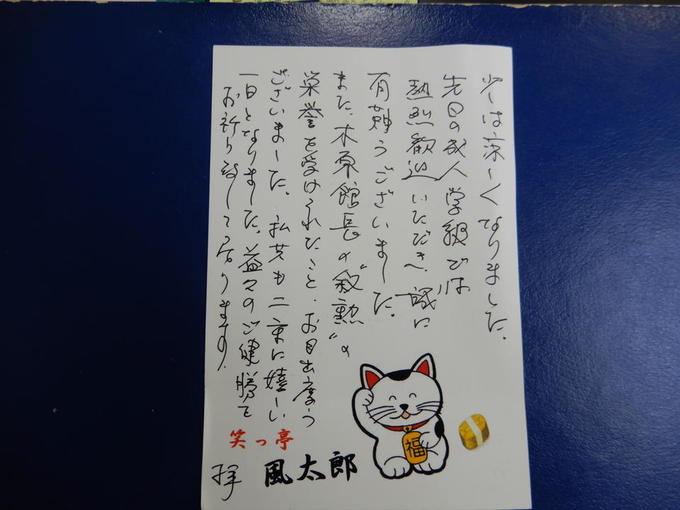 少しは涼しくなりました。
先日の成人学級では
熱烈歓迎いただき、誠に
有難うございました。
また、木原館長の“叙勲”の
栄誉を受けられたこと、お目出度う
ございました。私共も二重に嬉しい
一日となりました。益々のご健勝を
お祈り致して居ります。
笑っ亭
風太郎
拝
福